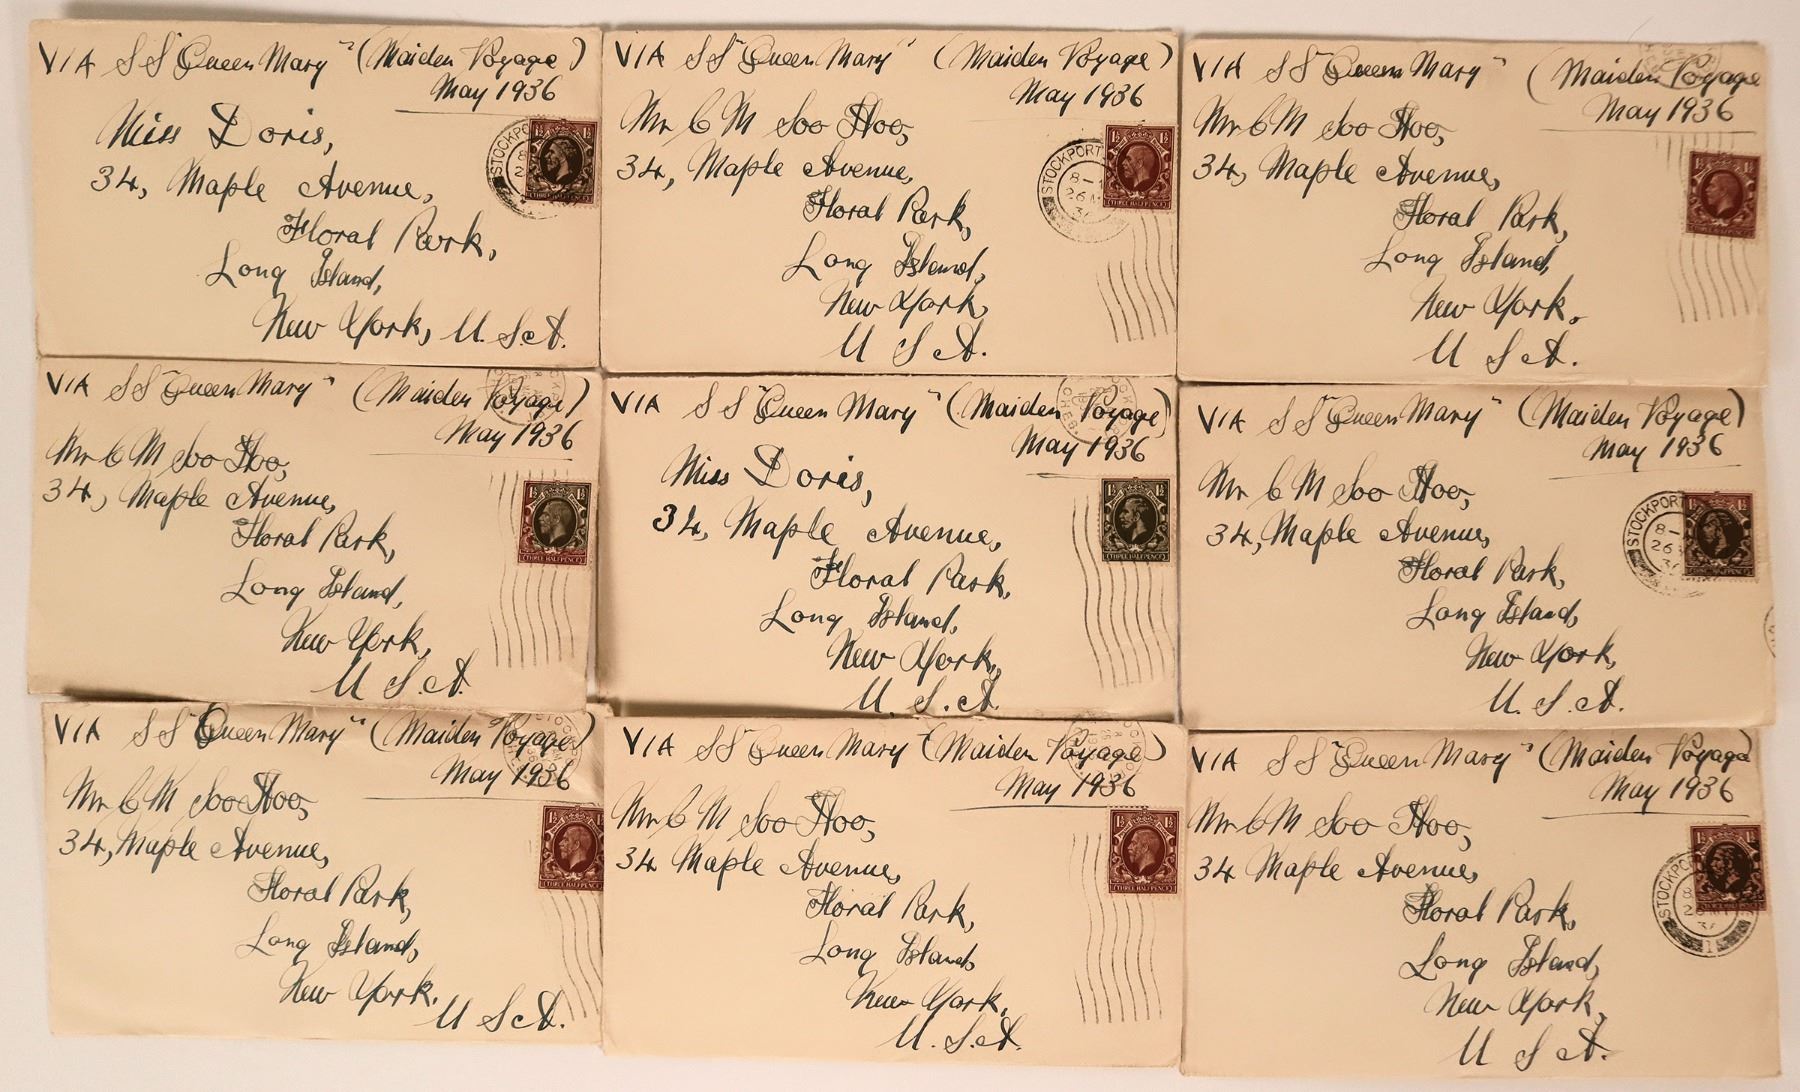 VIA SS "Queen Mary" (Maiden Voyage)
May 1936
Miss Doris,
34, Maple Avenue,
Floral Park,
Long Island,
New York, U.S.A.
STOCKPO
1½ 1½
VIA SS "Queen Mary" (Maiden Voyage)
May 1936
Mr C M Soo Hoo,
34, Maple Avenue,
Floral Park,
Long Island,
New York,
U S A.
STOCKPORT
8-
26 M
1½ 1½
THREE HALFPENCE
VIA SS "Queen Mary" (Maiden Voyage
May 1936
Mr C M Soo Hoo,
34, Maple Avenue,
Floral Park,
Long Island,
New York.
U S A.
1½ 1½
THREE HALFPENCE
VIA SS "Queen Mary" (Maiden Voyage)
May 1936
Mr C M Soo Hoo,
34, Maple Avenue,
Floral Park,
Long Island,
New York,
U S.A.
1½ 1½
THREE HALFPENCE
VIA SS "Queen Mary" (Maiden Voyage)
May 1936
Miss Doris,
34, Maple Avenue,
Floral Park,
Long Island,
New York,
U.S.A.
CHES.
1½ 1½
THREE HALFPENCE
VIA SS "Queen Mary" (Maiden Voyage)
May 1936
Mr C M Soo Hoo,
34, Maple Avenue,
Floral Park,
Long Island,
New York,
U.S.A.
STOCKPORT
8-
26
1½
THREE HALFPENCE
VIA SS "Queen Mary" (Maiden Voyage)
May 1936
Mr C M Soo Hoo,
34, Maple Avenue,
Floral Park,
Long Island,
New York.
U S A.
1½ 1½
THREE HALFPENCE
VIA SS "Queen Mary" (Maiden Voyage)
May 1936
Mr C M Soo Hoo,
34 Maple Avenue,
Floral Park,
Long Island,
New York,
U.S.A.
1½ 1½
THREE HALFPENCE
VIA SS "Queen Mary" (Maiden Voyage)
May 1936
Mr C M Soo Hoo,
34 Maple Avenue,
Floral Park,
Long Island,
New York,
U S A.
STOCKPO
1½ 1½